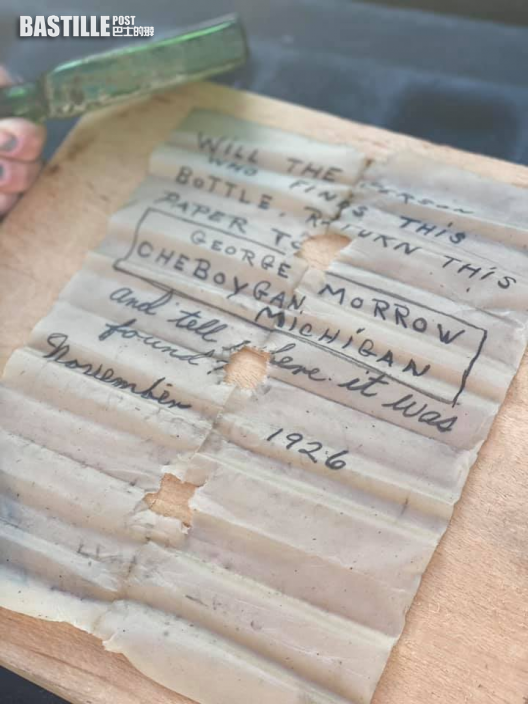 BASTILLE POST
巴士的報
WILL THE PERSON
WHO FINDS THIS
BOTTLE, RETURN THIS
PAPER TO
GEORGE MORROW
CHEBOYGAN,
MICHIGAN
and tell where it was
found?
November
1926